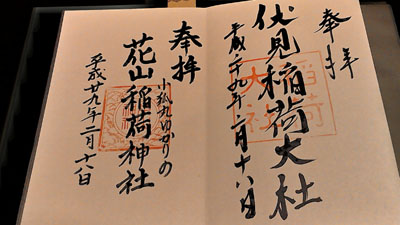 奉拝
伏見稲荷大社
平成二十九年二月十八日
奉拝
小狐丸ゆかりの
花山稲荷神社
平成廿九年二月十八日